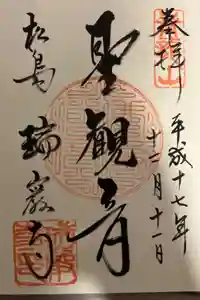 奉拝
平成十七年
十二月十一日
聖観音
松島
瑞巖寺